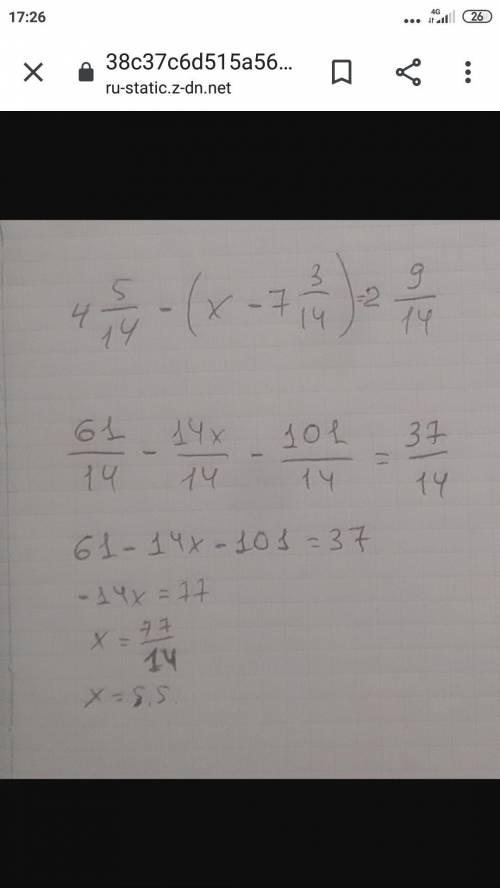 17:26 ... 4G 26
38c37c6d515a56...
ru-static.z-dn.net
4 5/14 - (x - 7 3/14) = 2 9/14
61/14 - 14x/14 - 101/14 = 37/14
61 - 14x - 101 = 37
-14x = 77
x = 77/14
x = 5,5